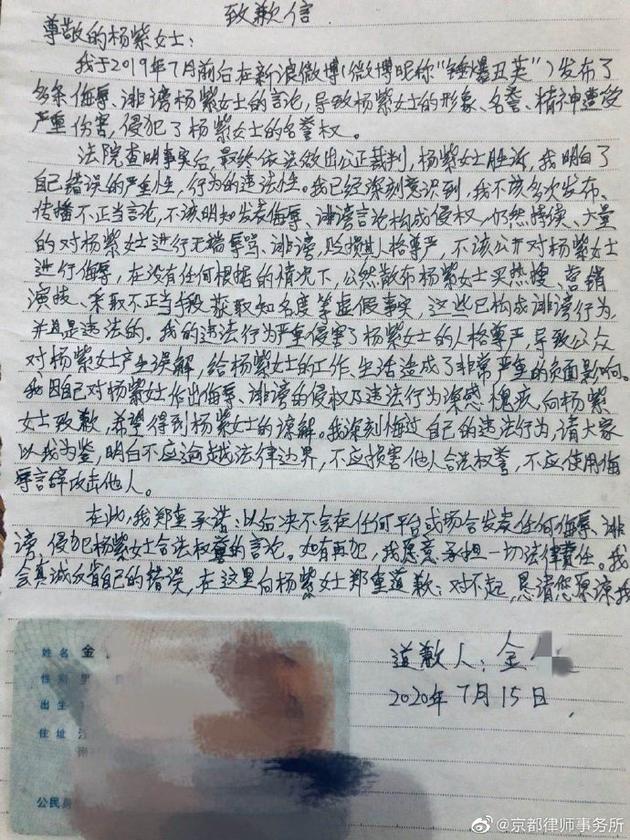 致歉信
尊敬的杨紫女士：
我于2019年7月前后在新浪微博(微博昵称“锤爆丑英”)发布了
多条侮辱、诽谤杨紫女士的言论，导致杨紫女士的形象、名誉、精神遭受
严重伤害，侵犯了杨紫女士的名誉权。
法院查明事实后，最终依法做出公正裁判，杨紫女士胜诉，我明白了
自己错误的严重性，行为的违法性。我已经深刻意识到，我不该多次发布、
传播不正当言论，不该明知发表侮辱、诽谤言论构成侵权，仍然持续、大量
的对杨紫女士进行无端辱骂、诽谤，贬损其人格尊严，不该公开对杨紫女士
进行侮辱，在没有任何根据的情况下，公然散布杨紫女士买热搜、营销
演技、采取不正当手段获取知名度等虚假事实，这些已构成诽谤行为
并且是违法的。我的违法行为严重侵害了杨紫女士的人格尊严，导致公众
对杨紫女士产生误解，给杨紫女士的工作、生活造成了非常严重的负面影响。
我因自己对杨紫女士作出侮辱、诽谤的侵权及违法行为深感愧疚，向杨紫
女士致歉，希望得到杨紫女士的谅解。我深刻悔过自己的违法行为，请大家
以我为鉴，明白不应逾越法律边界，不应损害他人合法权誉，不应使用侮
辱言辞攻击他人。
在此，我郑重承诺：以后决不会在任何平台或场合发表任何侮辱、诽
谤、侵犯杨紫女士合法权益的言论。如有再犯，我愿意承担一切法律责任。我
会真诚反省自己的错误，在这里向杨紫女士郑重道歉：对不起，恳请您原谅我
道歉人：金
2020年7月15日
姓名 金
性别
出生
住址
公民身
@京都律师事务所